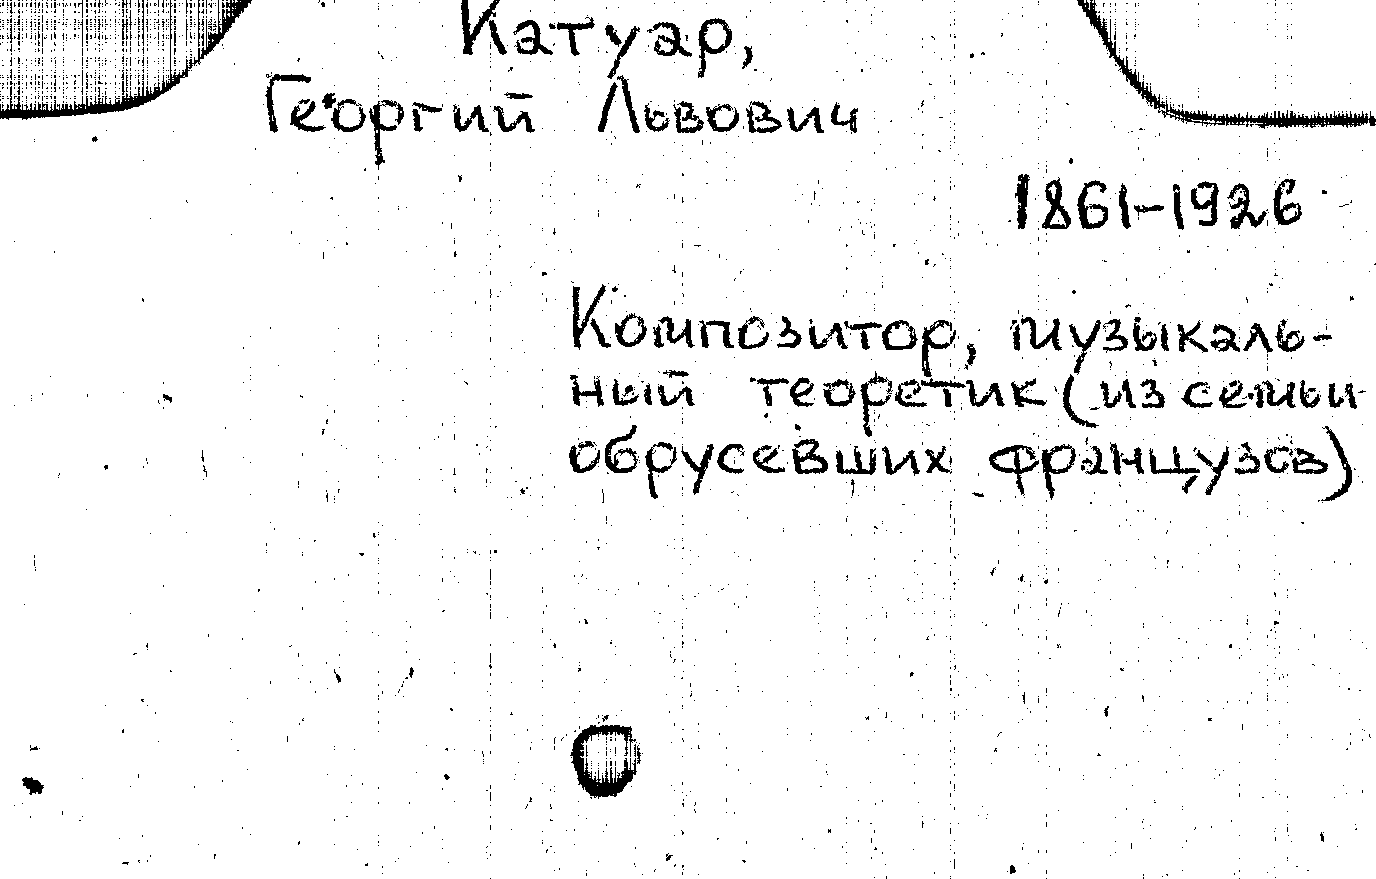 Катуар,
Георгий Львович
1861-1926
Композитор, музыкаль-
ный теоретик (из семьи
обрусевших французов)